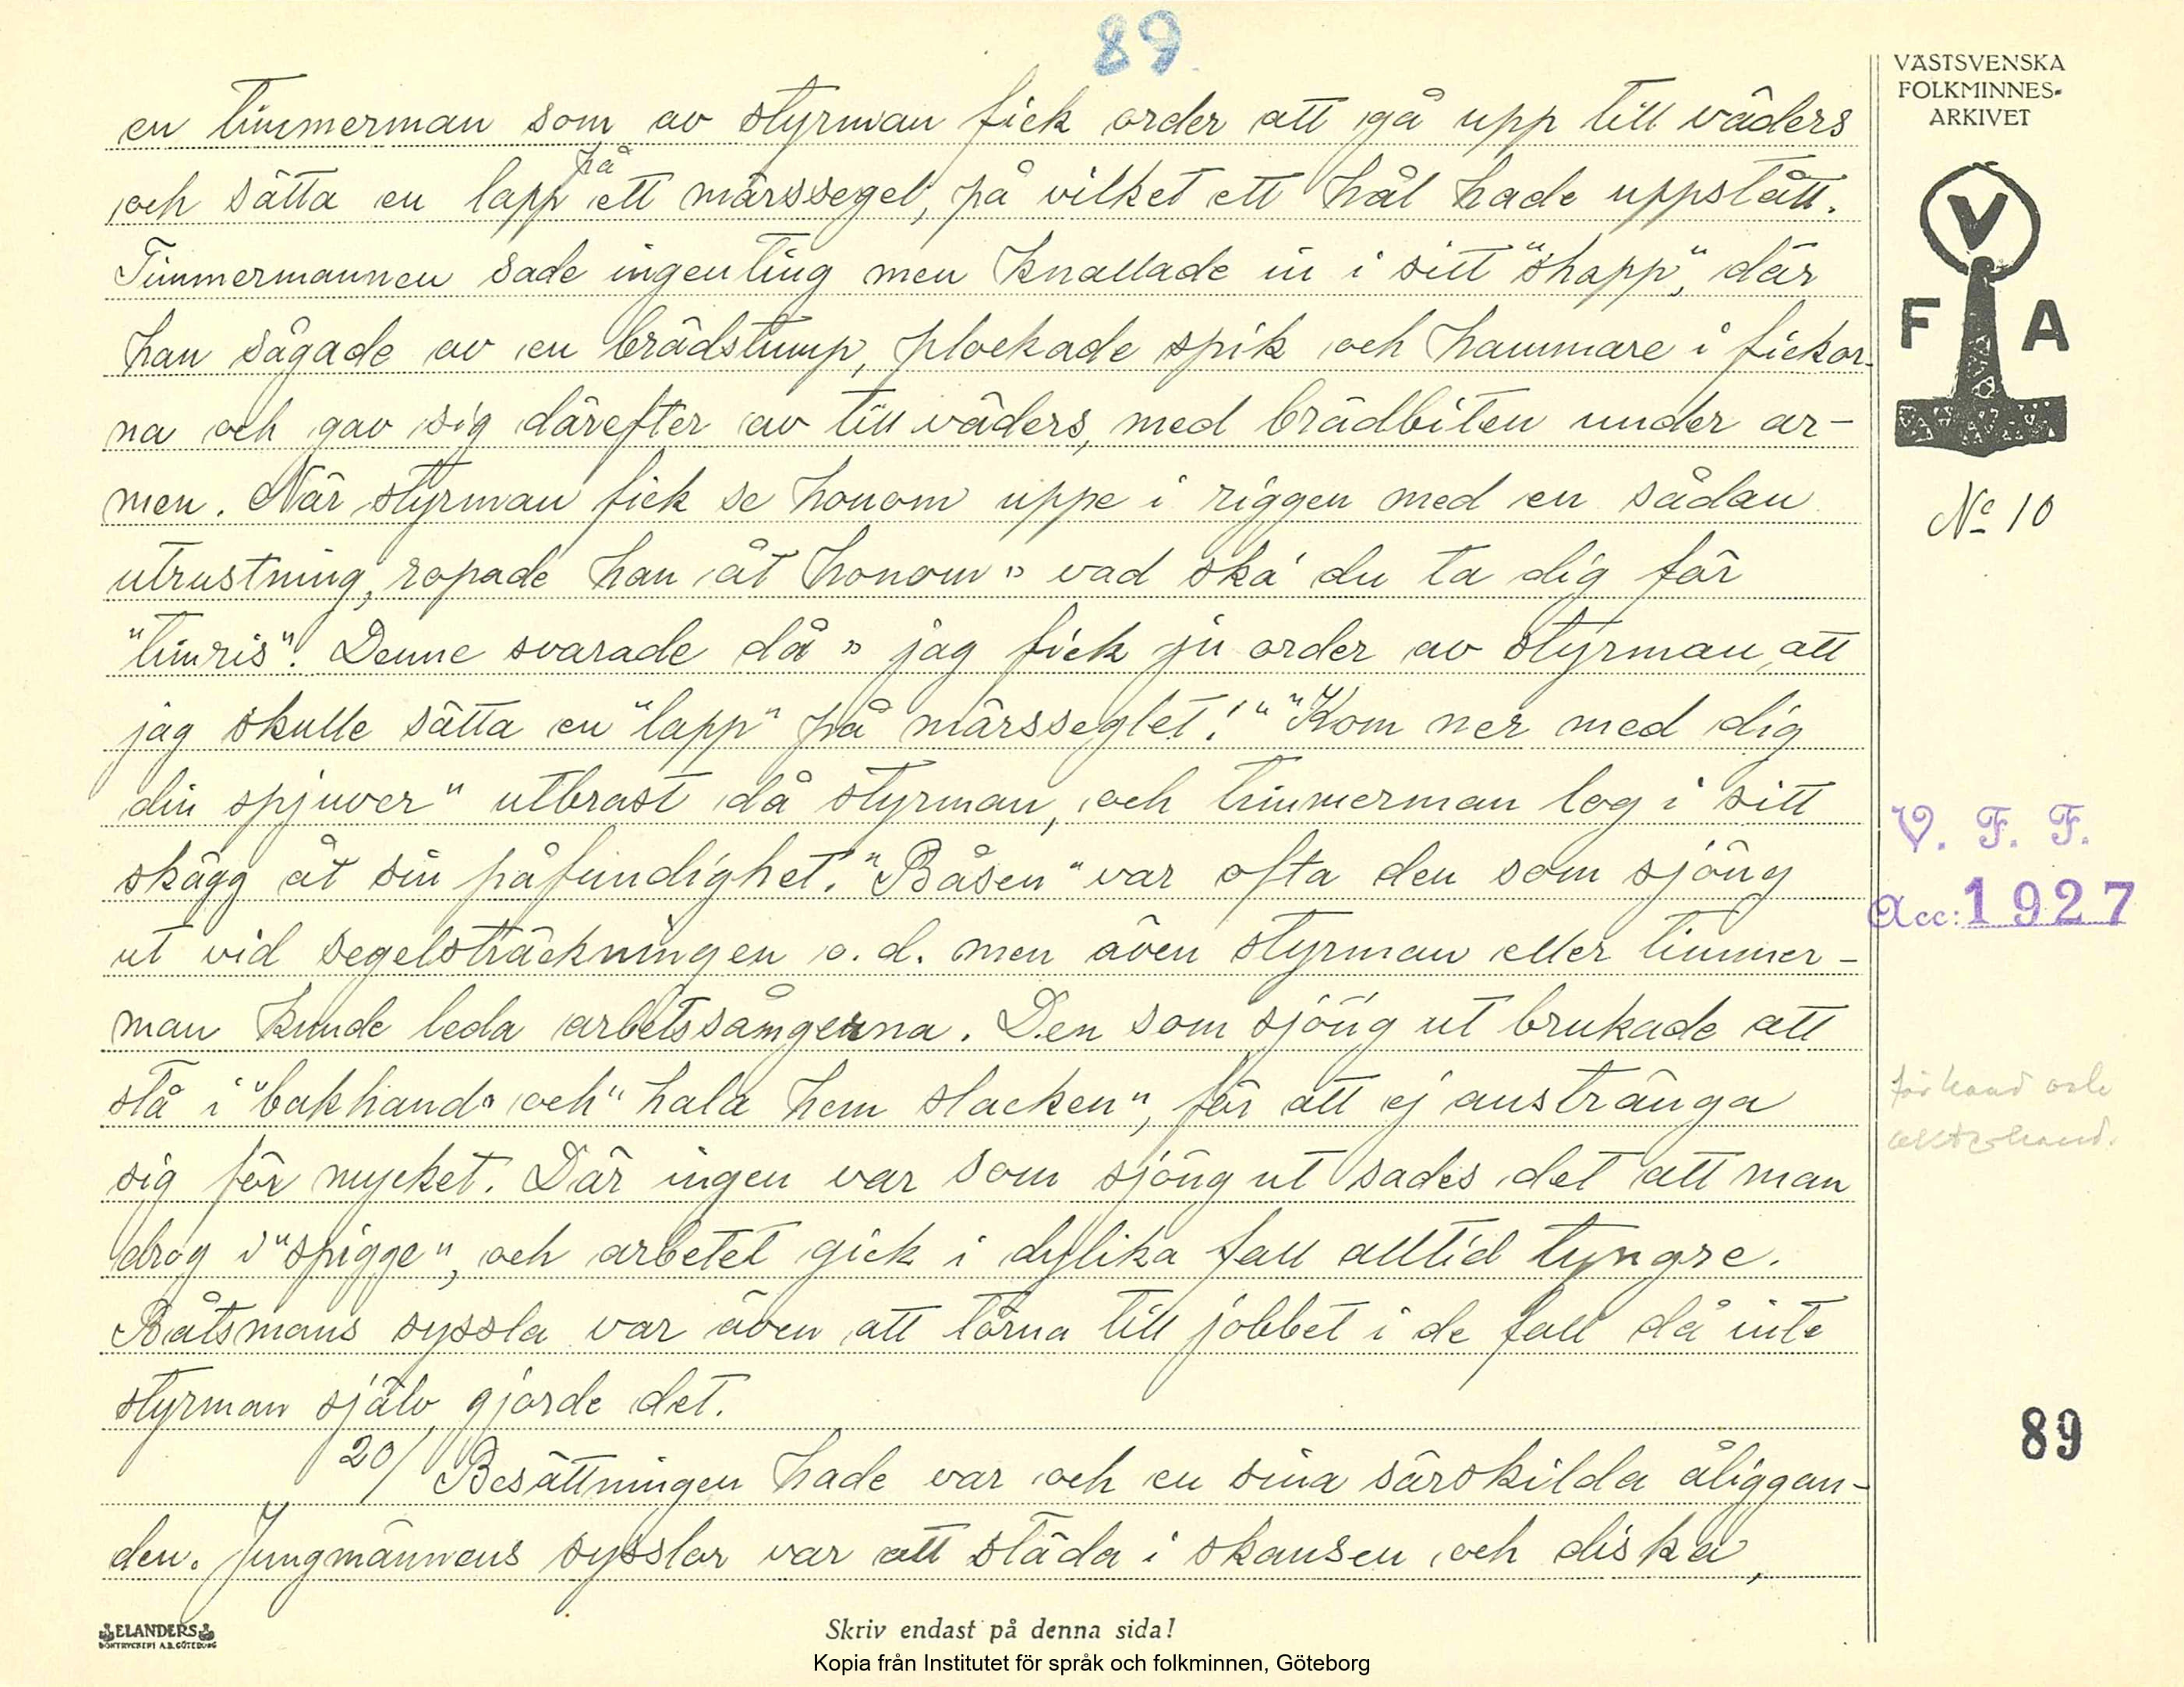 89.
en timmerman som av styrman fick order att gå upp till väders
på
och sätta en lapp ett märssegel, på vilket ett hål hade uppstått.
Timmermannen sade ingenting men knallade in i sitt "shapp", där
han sågade av en brädstump, plockade spik och hammare i fickor-
na och gav sig därefter av till väders, med brädbiten under ar-
men. När styrman fick se honom uppe i riggen med en sådan
utrustning, ropade han åt honom " vad ska' du ta dig för
"timris". Denne svarade då " jag fick ju order av styrman, att
jag skulle sätta en "lapp" på märsseglet!" "Kom ner med dig
din spjuver" utbrast då styrman, och timmerman log i sitt
skägg åt sin påfundighet. "Båsen" var ofta den som sjöng
ut vid segelsträckningen o.d. men även styrman eller timmer-
man kunde leda arbetssångerna. Den som sjöng ut brukade att
stå i "bakhand" och "hala hem slacken", för att ej anstränga
sig för mycket. Där ingen var som sjöng ut sades det att man
drog i "spigge", och arbetet gick i dylika fall alltid tyngre.
Båtsmans syssla var även att törna till jobbet i de fall då inte
styrman själv gjorde det.
20/ Besättningen hade var och en sina särskilda åliggan-
den. Jungmännens sysslor var att städa i skansen och diska,
VÄSTSVENSKA
FOLKMINNES-
ARKIVET
V
F A
No 10
V. F. F.
Acc: 1927
förhand och
akterhand.
89
ELANDERS
BOKTRYCKERI A.B. GÖTEBORG
Skriv endast på denna sida!
Kopia från Institutet för språk och folkminnen, Göteborg